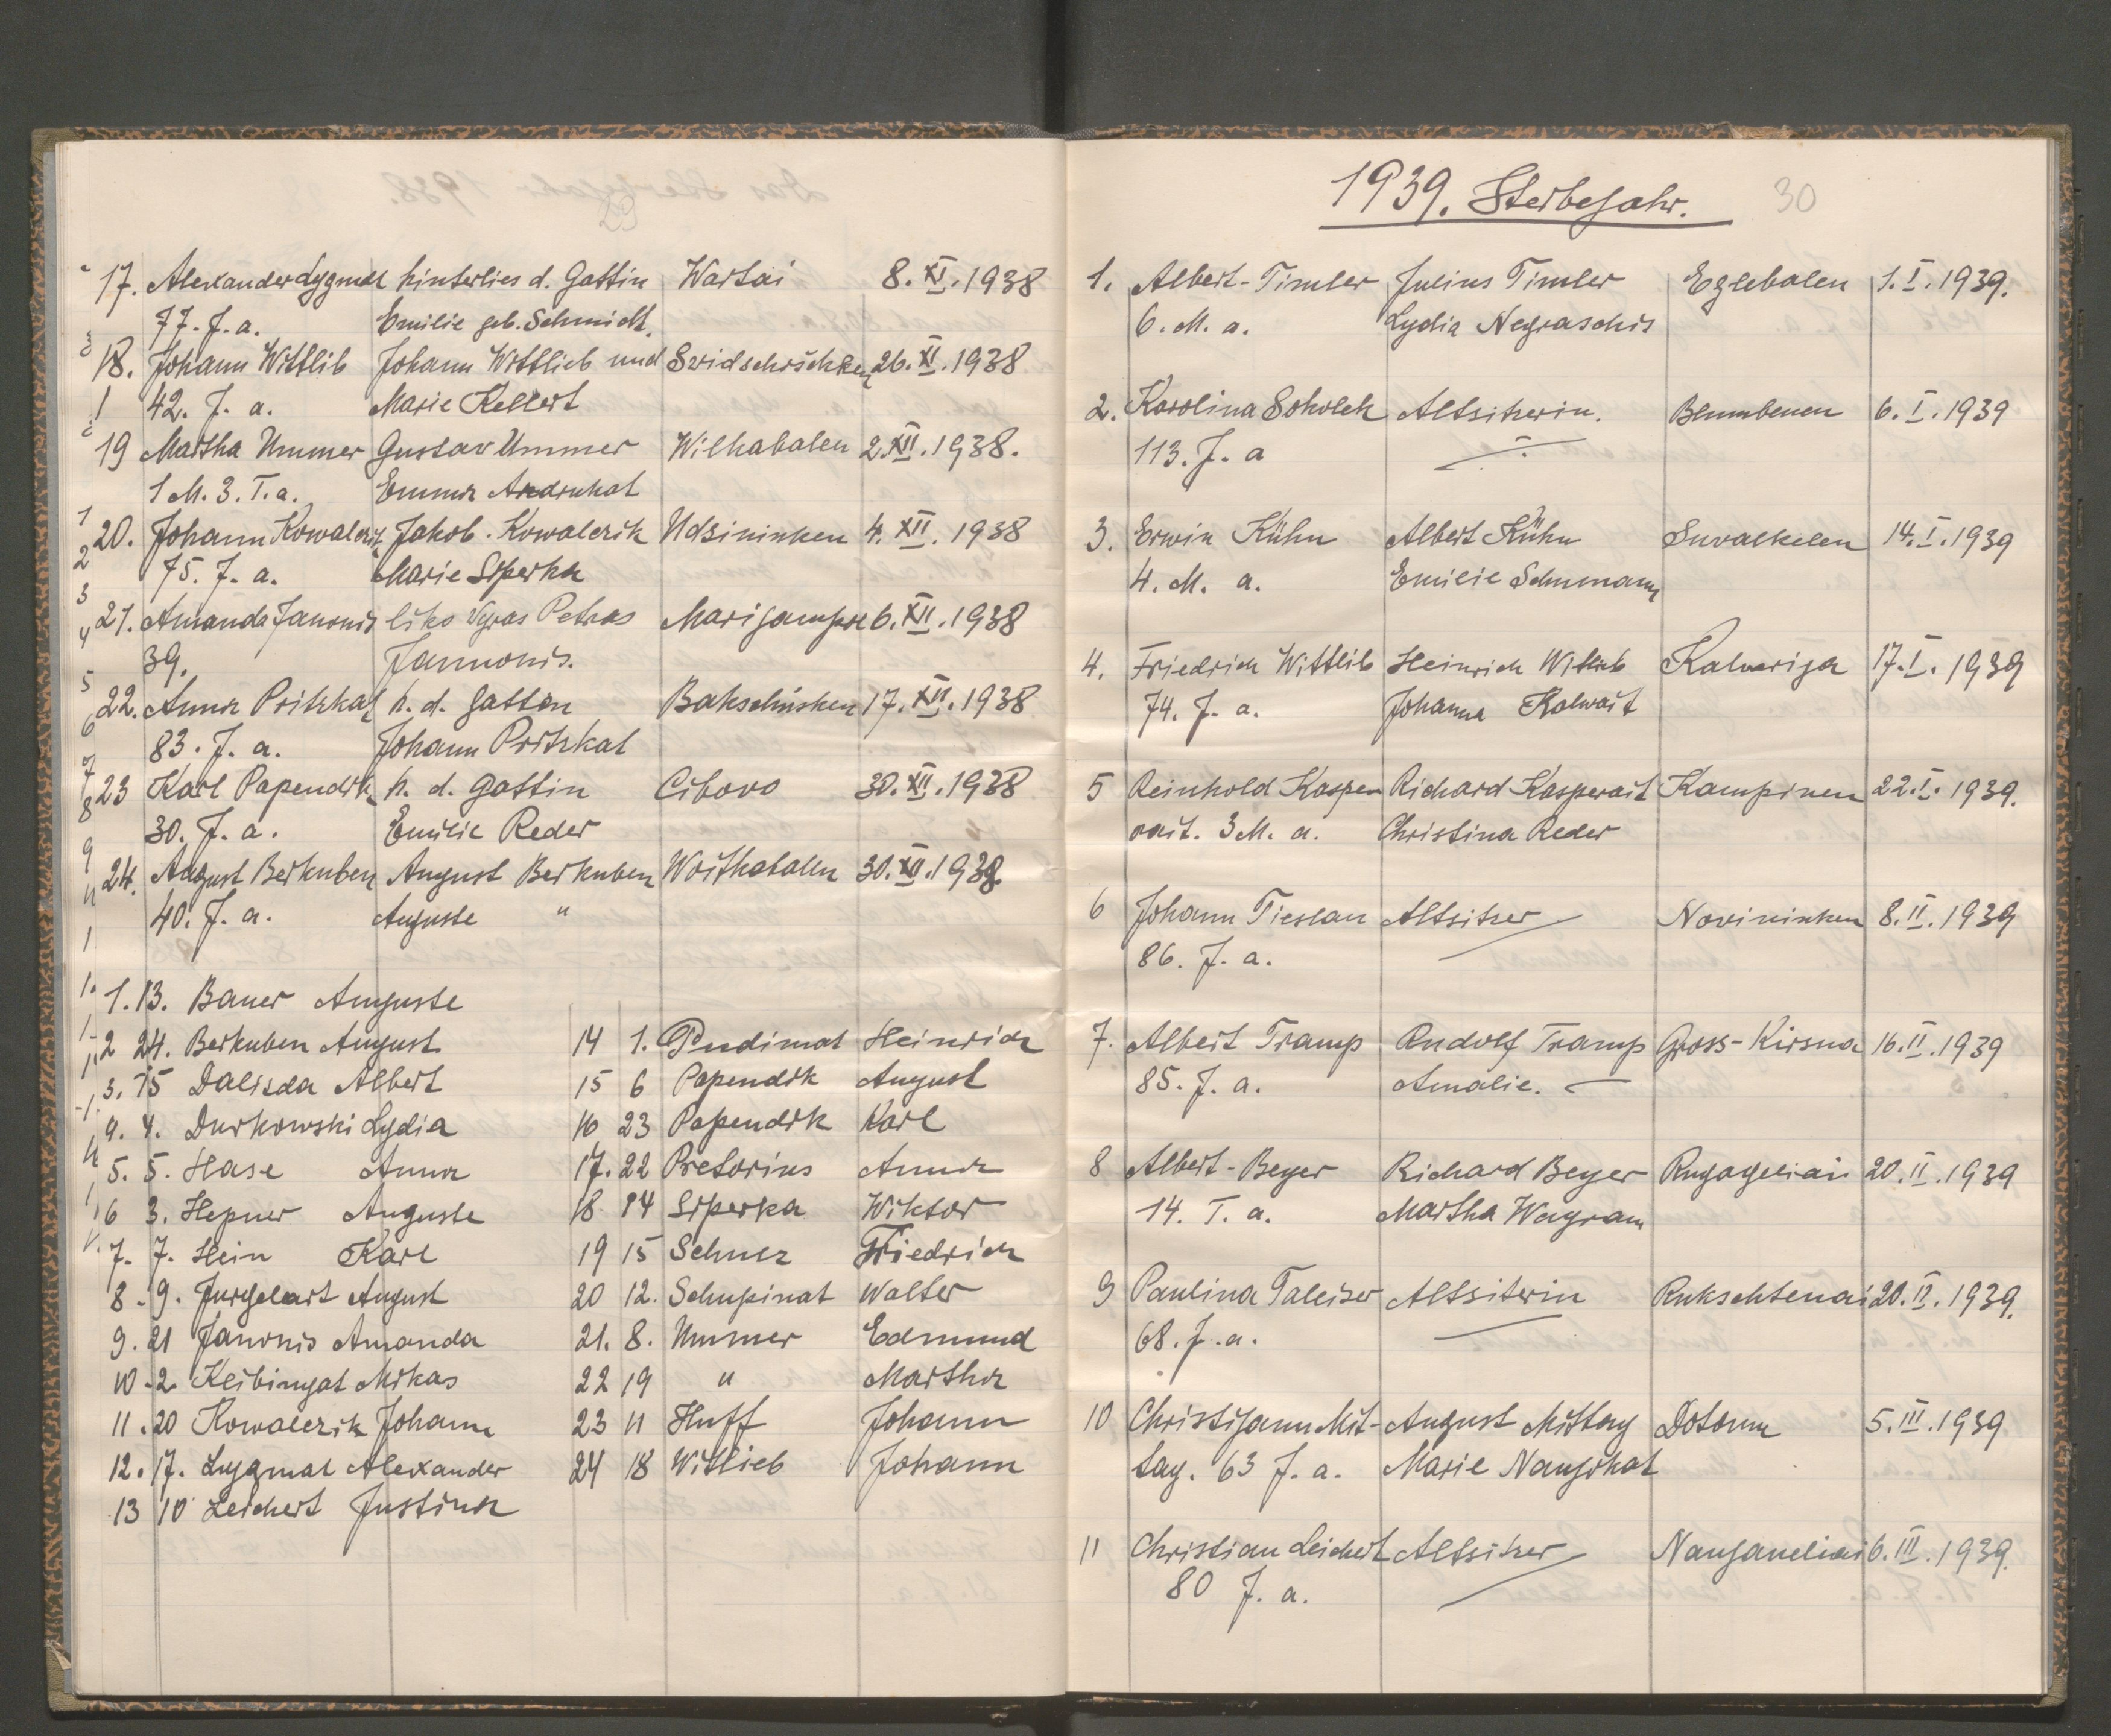 17. Alexander Lygmat hinterlies d. Gattin Wartai 8. XI. 1938
77. J. a. Emilie geb. Schmidt.
18. Johann Wittlib Johann Wittlieb und Svidschischken 26. XI. 1938
42. J. a. Marie Kellert
19 Martha Ummer Gustav Ummer Wilkabalen 2. XII. 1938.
1 M. 3. T. a. Emma Andrukat
20. Johann Kowalczik Jakob. Kowalczik Udsininken 4. XII. 1938
75. J. a. Marie Siperka
21. Amanda Janonis liko Vyras Petras Marijampol 6. XII. 1938
39. Jannonis.
22. Anna Pritzkat h. d. Gatten Bakschisken 17. XII. 1938
83. J. a. Johann Pritzkat
23 Karl Papendik h. d. Gattin Cibovo 30. XII. 1938
30. J. a. Emilie Reder
24. August Berkuben August Berkuben Woitkabalen 30. XII. 1938.
40. J. a. Auguste "
1. 13. Bauer Auguste
2 24. Berkuben August
3. 15 Dalisda Albert
4. 4. Durkowski Lydia
5. 5. Hase Anna
6 3. Hepner Auguste
7. 7. Hein Karl
8. 9. Jurgelait August
9. 21 Janonis Amanda
10. 2. Keibingat Mikas
11. 20 Kowalczik Johann
12. 17. Lygmat Alexander
13 10 Leichert Justina
14 1. Pudimat Heinrich
15 6 Papendik August
16 23 Papendik Karl
17. 22 Pretorius Anna
18 14 Siperka Wiktor
19 15 Schulz Friedrich
20 12. Schupinat Walter
21. 8. Ummer Edmund
22 19 " Martha
23 11 Huff Johann
24 18 Witlieb Johann
1939. Sterbejahr. 30
1. Albert-Timler Julius Timler Eglebalen 1. I. 1939.
6. M. a. Lydia Negraschis
2. Karolina Sokolek Altsitzerin. Blumbenen 6. I. 1939
113. J. a
3. Erwin Kühn Albert Kühn Suvalkelen 14. I. 1939
4. M. a. Emilie Schumann
4. Friedrich Wittlib Heinrich Wittlib Kalvarija 17. I. 1939
74. J. a. Johanna Kalwait
5 Reinhold Kasper Richard Kasperait Kampinen 22. I. 1939.
rait. 3 M. a. Christina Reder
6 Johann Tieslau Altsitzer Novininken 8. II. 1939
86. J. a.
7. Albert Tramp Rudolf Tramp Gross-Kirsna 16. II. 1939
85. J. a. Amalie. —
8 Albert-Beyer Richard Beyer Rugageliai 20. II. 1939
14. T. a. Martha Wagram
9 Paulina Taleiser Altsiterin Rukschtenai 20. II. 1939.
68. J. a.
10 Christijann Mit- August Mittag Dotoma 5. III. 1939
tag. 63 J. a. Marie Naujokat
11 Christian Leichert Altsitzer Naujaneliai 6. III. 1939.
80 J. a.